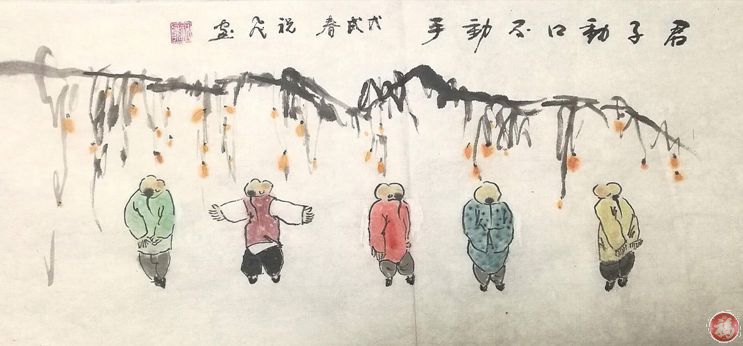 君子動口不動手 戊戌春 祝